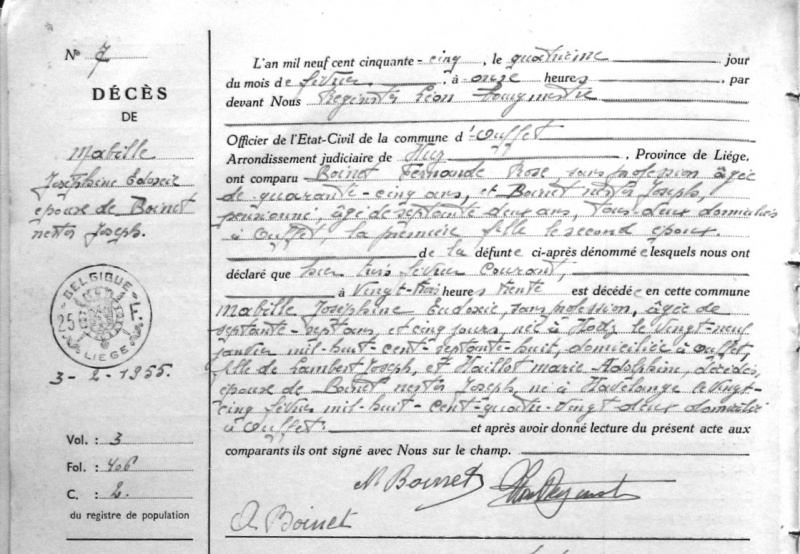 N° 7
DÉCÈS
DE
Mabille
Joséphine Edoxie
épouse de Boinet
nestor Joseph.
BELGIQUE
25 F
LIÉGE
3-2-1955.
Vol. : 3
Fol. : 406
C. : 2.
du registre de population
L'an mil neuf cent cinquante-cinq, le quatrième jour
du mois de février, à onze heures, par
devant Nous Léon Bourgmestre
Officier de l'Etat-Civil de la commune d'Ouffet
Arrondissement judiciaire de Huy, Province de Liége,
ont comparu Boinet Fernande Rose, sans profession âgée
de quarante-cinq ans, et Boinet nestor Joseph,
pensionné, âgé de septante deux ans, tous deux domiciliés
à Ouffet, la première fille le second époux.
de la défunte ci-après dénommée lesquels nous ont
déclaré que hier trois février courant,
à vingt-trois heures trente est décédée en cette commune
Mabille Joséphine Eudoxie, sans profession, âgée de
septante-sept ans, et cinq jours, née à Hody le vingt-neuf
janvier mil-huit-cent-septante-huit, domiciliée à Ouffet,
fille de Lambert Joseph, et Haillot marie-Adolphine, décédés,
épouse de Boinet nestor Joseph, né à Havelange le vingt-
cinq février mil-huit-cent-quatre-vingt deux domicilié
à Ouffet. et après avoir donné lecture du présent acte aux
comparants ils ont signé avec Nous sur le champ.
N Boinet
Boinet